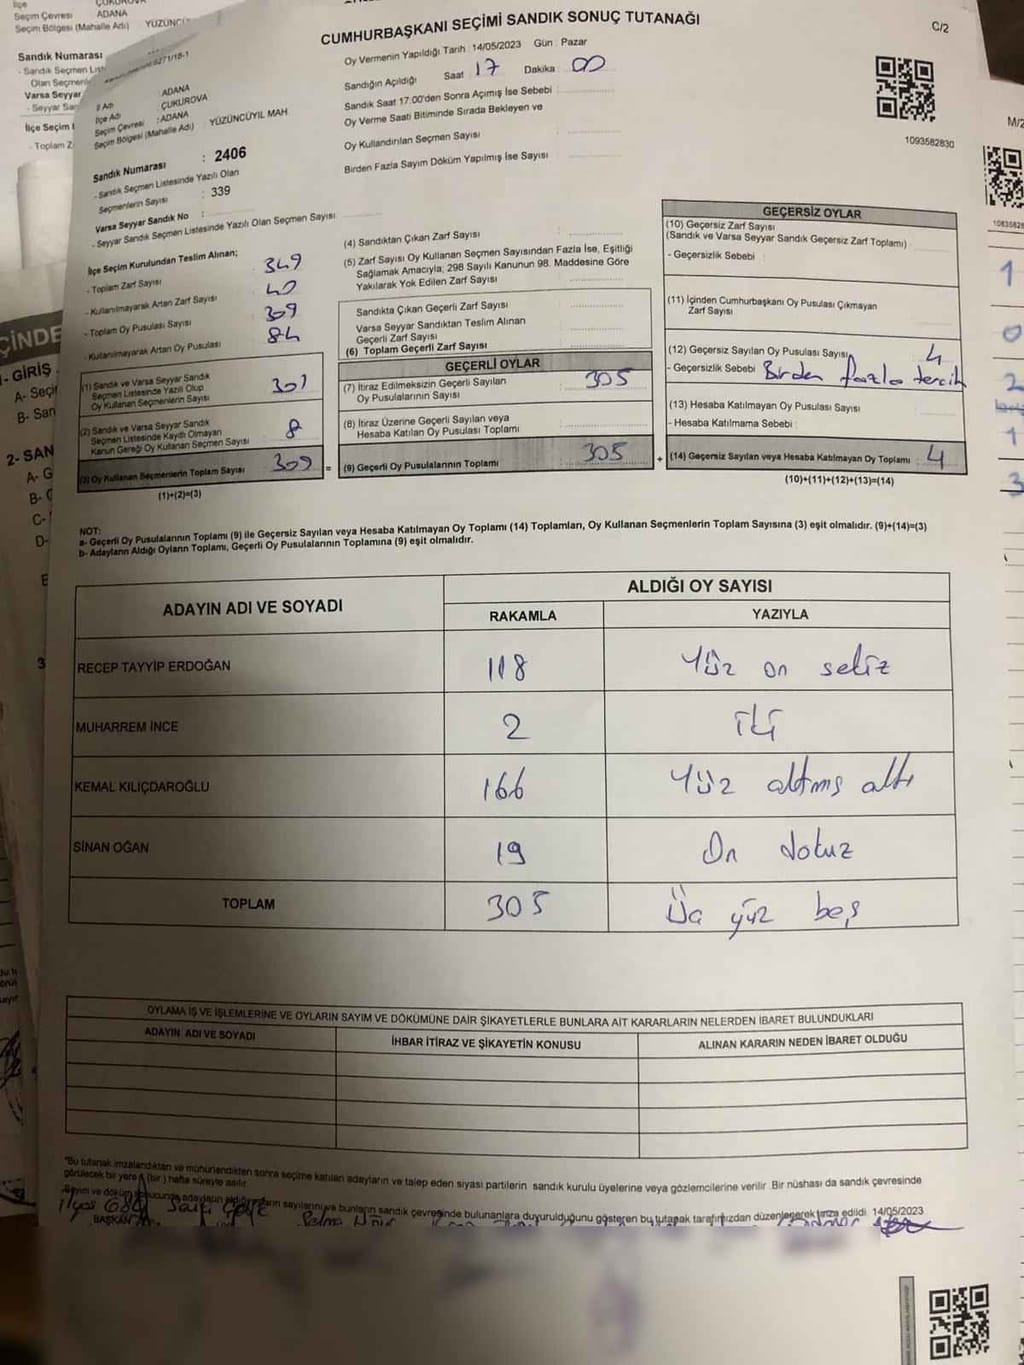 CUMHURBAŞKANI SEÇİMİ SANDIK SONUÇ TUTANAĞI
C/2
Oy Vermenin Yapıldığı Tarih : 14/05/2023 Gün : Pazar
Sandığın Açıldığı Saat 17 Dakika 00
Sandık Saat 17:00'den Sonra Açımış İse Sebebi
Oy Verme Saati Bitiminde Sırada Bekleyen ve
Oy Kullandırılan Seçmen Sayısı
Birden Fazla Sayım Döküm Yapılmış İse Sayısı
1093582830
İl Adı : ADANA
İlçe Adı : ÇUKUROVA
Seçim Çevresi : ADANA
Seçim Bölgesi (Mahalle Adı) : YÜZÜNCÜYIL MAH
Sandık Numarası : 2406
- Sandık Seçmen Listesinde Yazılı Olan
Seçmenlerin Sayısı : 339
Varsa Seyyar Sandık No :
- Seyyar Sandık Seçmen Listesinde Yazılı Olan Seçmen Sayısı :
İlçe Seçim Kurulundan Teslim Alınan;
- Toplam Zarf Sayısı 349
- Kullanılmayarak Artan Zarf Sayısı 40
- Toplam Oy Pusulası Sayısı 309
- Kullanılmayarak Artan Oy Pusulası 84
(1) Sandık ve Varsa Seyyar Sandık
Seçmen Listesinde Yazılı Olup
Oy Kullanan Seçmenlerin Sayısı 301
(2) Sandık ve Varsa Seyyar Sandık
Seçmen Listesinde Kayıtlı Olmayan
Kanun Gereği Oy Kullanan Seçmen Sayısı 8
(3) Oy Kullanan Seçmenlerin Toplam Sayısı 309 =
(1)+(2)=(3)
(4) Sandıktan Çıkan Zarf Sayısı
(5) Zarf Sayısı Oy Kullanan Seçmen Sayısından Fazla İse, Eşitliği
Sağlamak Amacıyla; 298 Sayılı Kanunun 98. Maddesine Göre
Yakılarak Yok Edilen Zarf Sayısı
Sandıkta Çıkan Geçerli Zarf Sayısı
Varsa Seyyar Sandıktan Teslim Alınan
Geçerli Zarf Sayısı
(6) Toplam Geçerli Zarf Sayısı
GEÇERLİ OYLAR
(7) İtiraz Edilmeksizin Geçerli Sayılan
Oy Pusulalarının Sayısı 305
(8) İtiraz Üzerine Geçerli Sayılan veya
Hesaba Katılan Oy Pusulası Toplamı
(9) Geçerli Oy Pusulalarının Toplamı 305 +
GEÇERSİZ OYLAR
(10) Geçersiz Zarf Sayısı
(Sandık ve Varsa Seyyar Sandık Geçersiz Zarf Toplamı)
- Geçersizlik Sebebi :
(11) İçinden Cumhurbaşkanı Oy Pusulası Çıkmayan
Zarf Sayısı
(12) Geçersiz Sayılan Oy Pusulası Sayısı 4
- Geçersizlik Sebebi Birden fazla tercih
(13) Hesaba Katılmayan Oy Pusulası Sayısı
- Hesaba Katılmama Sebebi :
(14) Geçersiz Sayılan veya Hesaba Katılmayan Oy Toplamı 4
(10)+(11)+(12)+(13)=(14)
NOT:
a- Geçerli Oy Pusulalarının Toplamı (9) ile Geçersiz Sayılan veya Hesaba Katılmayan Oy Toplamı (14) Toplamları, Oy Kullanan Seçmenlerin Toplam Sayısına (3) eşit olmalıdır. (9)+(14)=(3)
b- Adayların Aldığı Oyların Toplamı, Geçerli Oy Pusulalarının Toplamına (9) eşit olmalıdır.
ADAYIN ADI VE SOYADI ALDIĞI OY SAYISI
RAKAMLA YAZIYLA
RECEP TAYYİP ERDOĞAN 118 Yüz on sekiz
MUHARREM İNCE 2 iki
KEMAL KILIÇDAROĞLU 166 Yüz altmış altı
SİNAN OĞAN 19 On dokuz
TOPLAM 305 Üç yüz beş
OYLAMA İŞ VE İŞLEMLERİNE VE OYLARIN SAYIM VE DÖKÜMÜNE DAİR ŞİKAYETLERLE BUNLARA AİT KARARLARIN NELERDEN İBARET BULUNDUKLARI
ADAYIN ADI VE SOYADI İHBAR İTİRAZ VE ŞİKAYETİN KONUSU ALINAN KARARIN NEDEN İBARET OLDUĞU
"Bu tutanak imzalandıktan ve mühürlendikten sonra seçime katılan adayların ve talep eden siyasi partilerin sandık kurulu üyelerine veya gözlemcilerine verilir. Bir nüshası da sandık çevresinde
görülecek bir yere (bir) hafta süreyle asılır.
bunların sandık çevresinde bulunanlara duyurulduğunu gösteren bu tutanak tarafımızdan düzenlenerek imza edildi. 14/05/2023
BAŞKAN